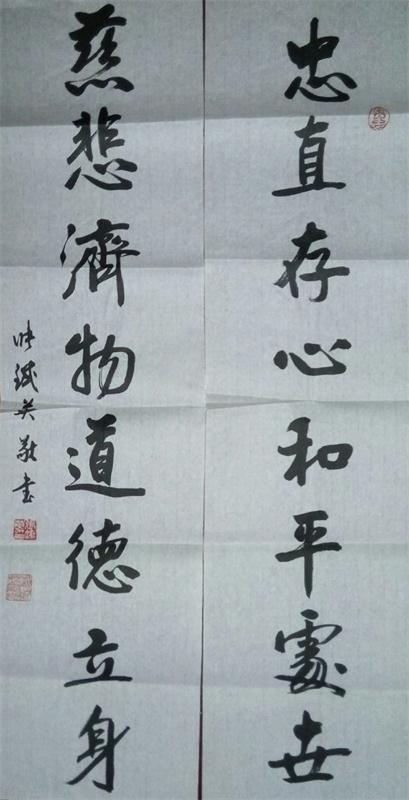 忠直存心和平處世
慈悲濟物道德立身
英敬書